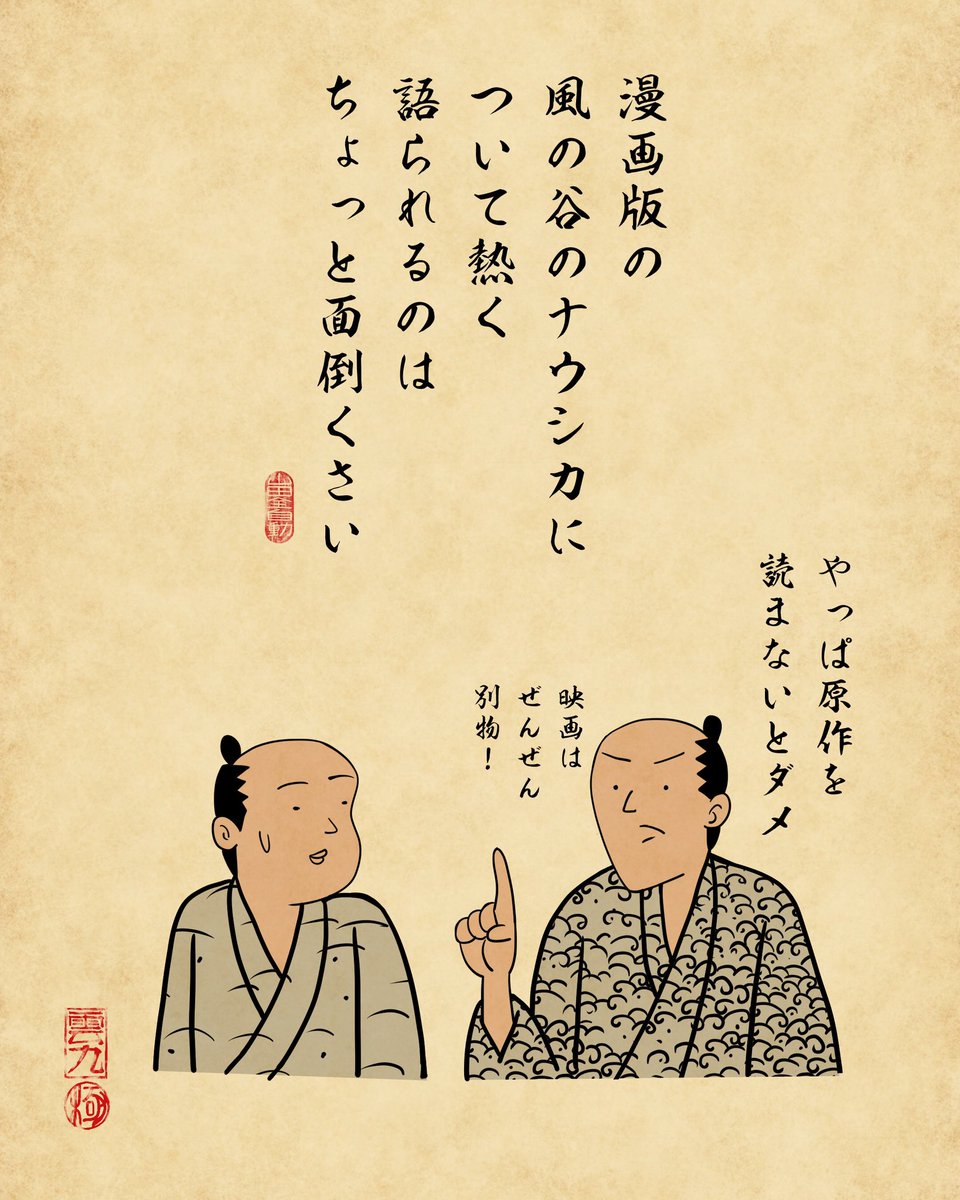 漫画版の
風の谷のナウシカに
ついて熱く
語られるのは
ちょっと面倒くさい
やっぱ原作を
読まないとダメ
映画は
ぜんぜん
別物！